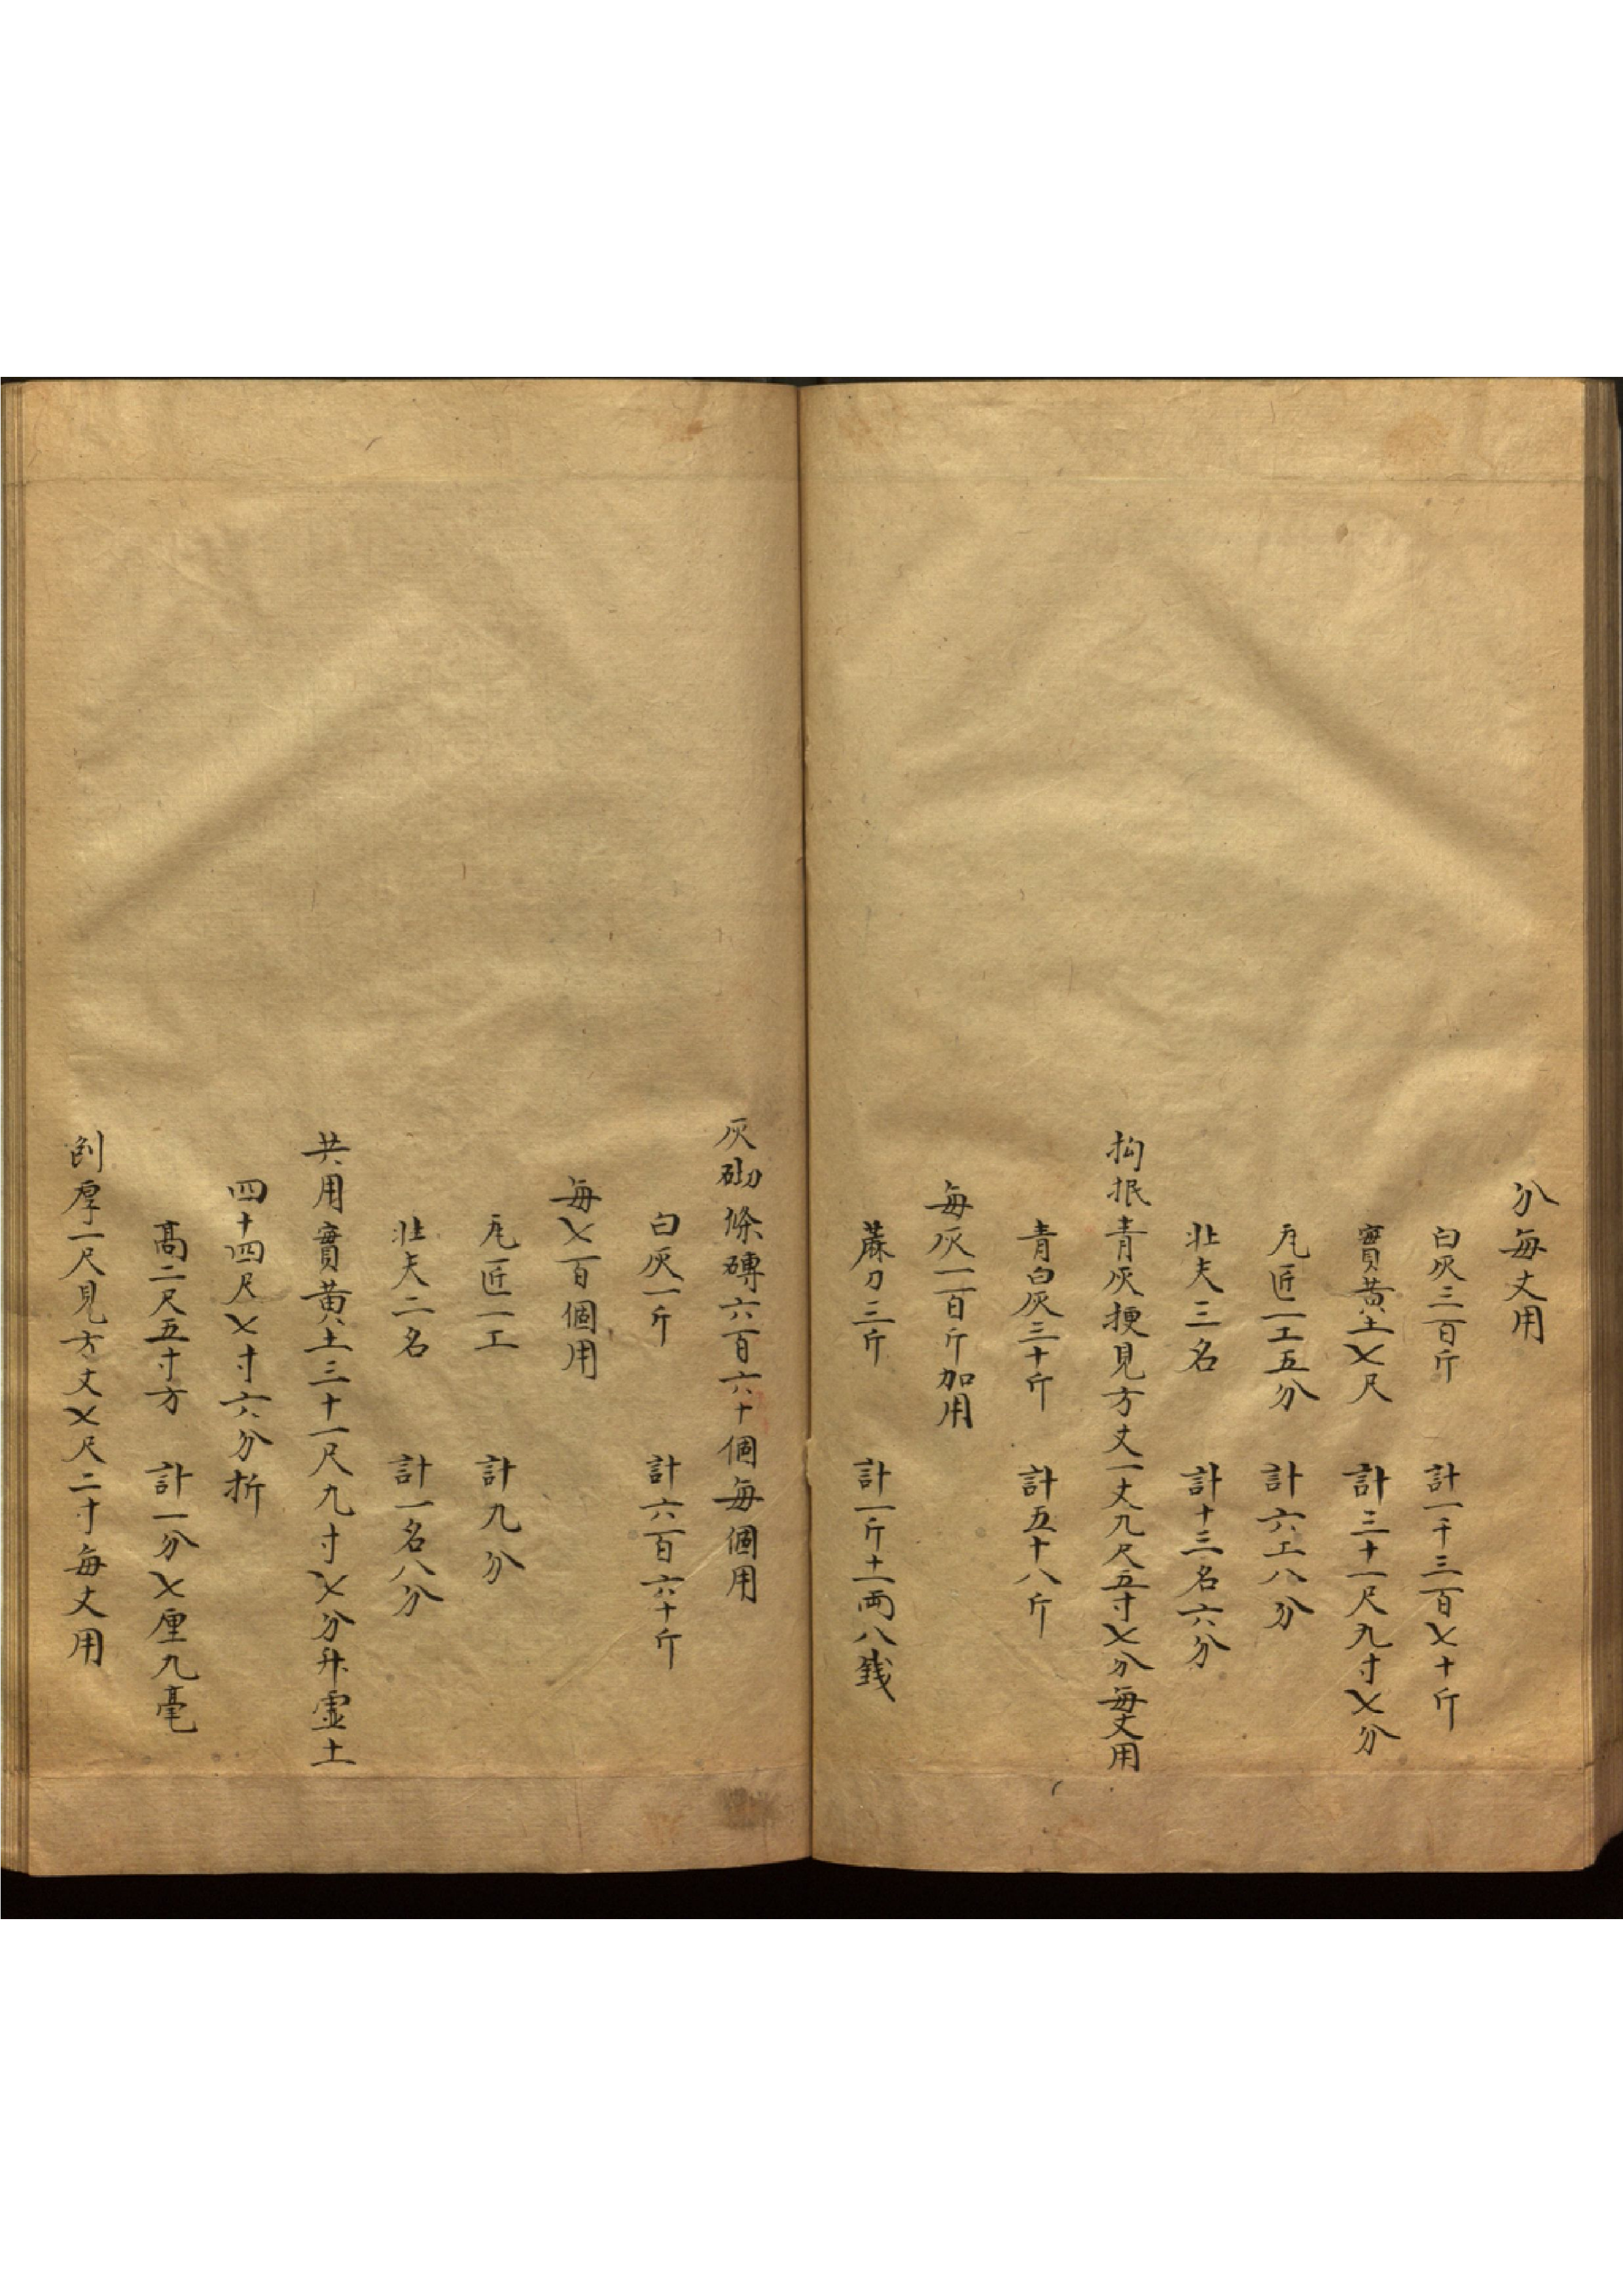 分每丈用
白灰三百斤　計一千三百七十斤
實黃土七尺　計三十一尺九寸七分
瓦匠一工五分　計六工八分
壯夫三名　計十三名六分
抅抿青灰挭見方丈一丈九尺五寸七分每丈用
青白灰三十斤　計五十八斤
每灰一百斤加用
蔴刀三斤　計一斤十一両八錢
灰砌條磚六百六十個每個用
白灰一斤　計六百六十斤
每七百個用
瓦匠一工　計九分
壯夫二名　計一名八分
共用實黃土三十一尺九寸七分升虛土
四十四尺七寸六分折
高二尺五寸方　計一分七厘九毫
刨厚一尺見方丈七尺二寸每丈用